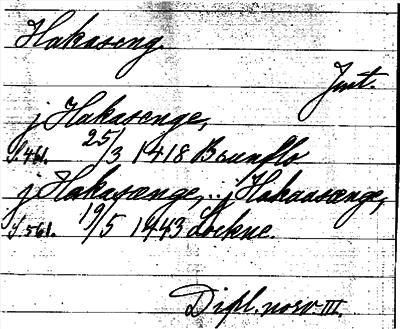 Hakaseng
Jmt.
j Hakasenge,
S. 461. 25/3 1418 Brunflo
j Hakasænge, .. j Hakaasænge,
S 561. 19/5 1443 Lockne.
Dipl. norv III.